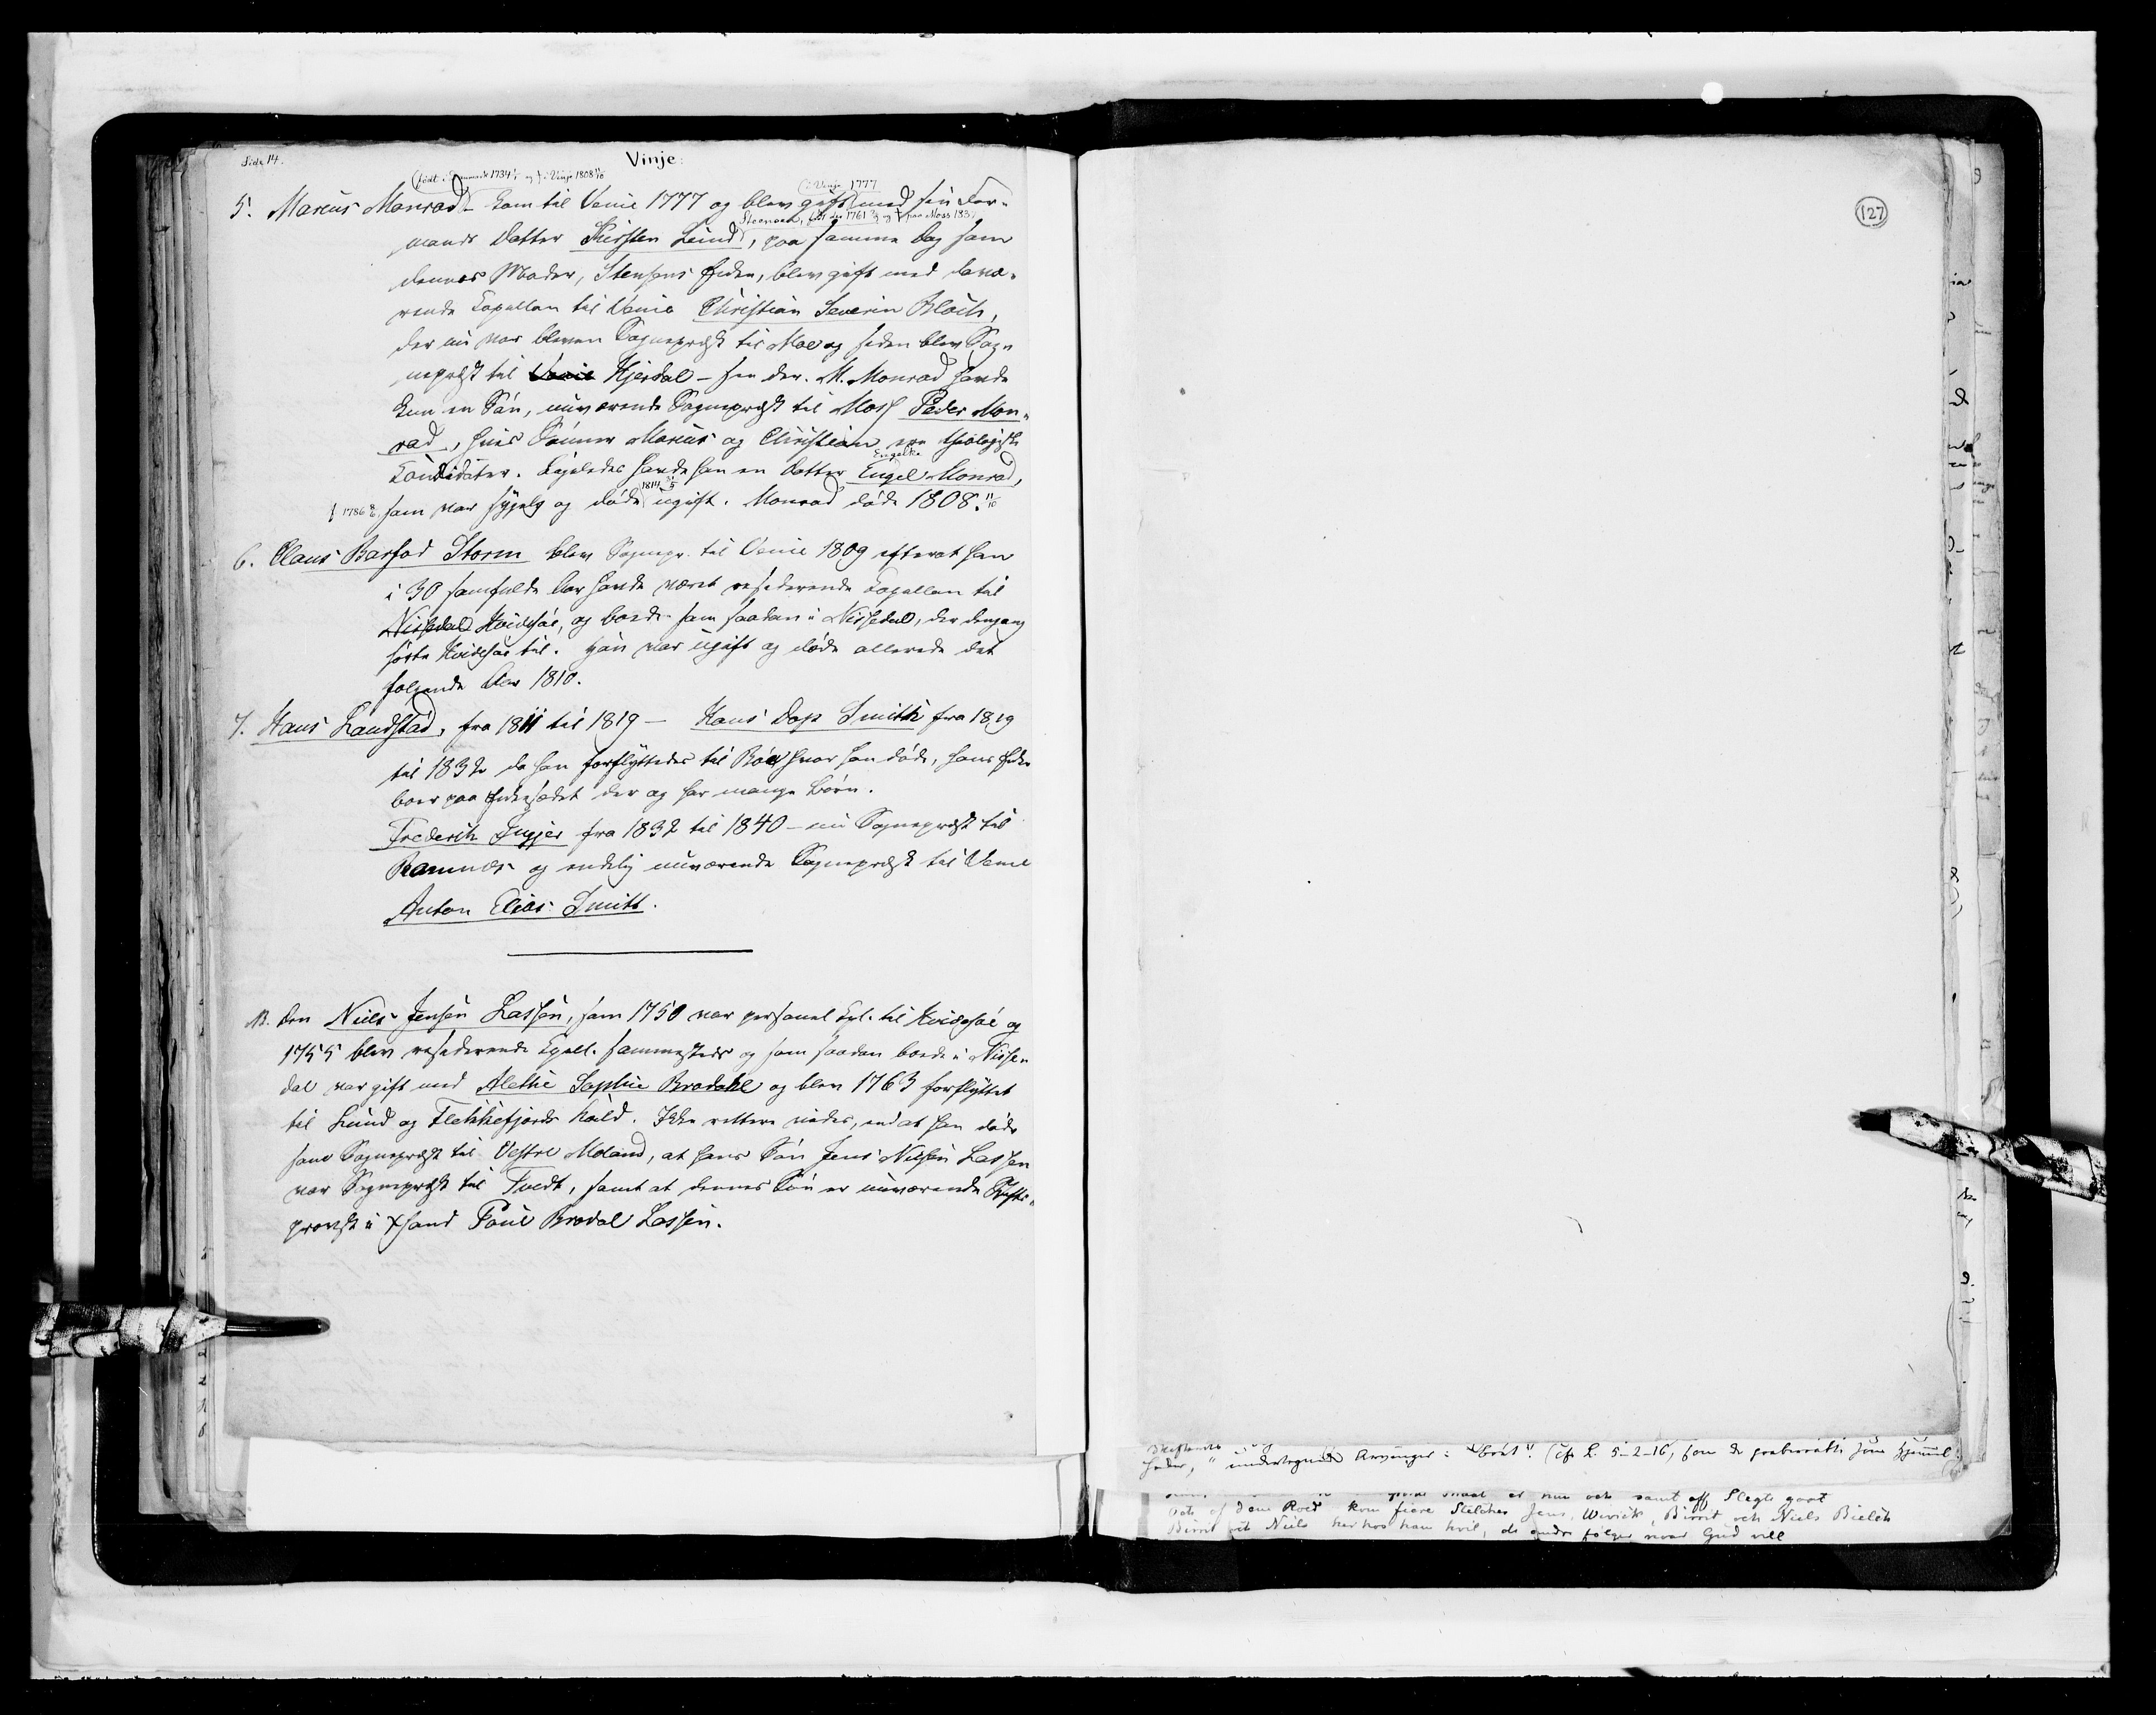 Side 14.
Vinje:
(født i Danmark 1734 og † i Vinje 1808 11/10
(i Vinje 1777
5. Marcus Monrad kom til Vinie 1777 og blev gift med sin For-
Steensen, født der 1761 og † paa Moss 183
mands Datter Kirsten Lund, paa samme Dag som
dennes Moder, Stensens Enke, blev gift med davæ-
rende Capellan til Vinie Christian Severin Bloch,
der nu var bleven Sognepræst til Moe og siden blev Sog-
nepræst til Vinie Hjerdal – see der. M. Monrad havde
kun en Søn, nuværende Sognepræst til Moss Peder Mon-
rad, hvis Sønner Marcus og Christian ere theologiske
Engelke
Candidater. Ligeledes havde han en Datter Engel Monrad,
1814
f 1786 som var sygelig og døde ugift. Monrad døde 1808. 11/10
6. Claus Barfod Storm blev Sognepr. til Vinie 1809 efterat han
i 30 samfulde Aar havde været residerende Capellan til
Nissedal Hvidesøe, og boede som saadan i Nissedal, der dengang
hørte Hvidesøe til. Han var ugift og døde allerede det
følgende Aar 1810.
7. Hans Landstad, fra 1811 til 1819 – Hans Dop Smith fra 1819
til 1832 da han forflyttedes til Böe hvor han døde, hans Enke
boer paa Enkesædet der og har mange Børn.
Frederik Ingier fra 1832 til 1840 – nu Sognepræst til
Ramnæs og endelig nuværende Sognepræst til Vinie
Anton Elias Smitt.
NB. Den Niels Jensen Lassen, som 1750 var personel Cpl. til Hvidesøe og
1755 blev residerende Cpell. sammesteds og som saadan boede i Nisse-
dal var gift med Alethe Sophie Brodahl og blev 1763 forflyttet
til Lund og Flekkefjords Kald. Ikke rettere vides, end at han døde
som Sognepræst til Vestre Moland, at hans Søn Jens Nilsen Lassen
var Sognepræst til Tvedt, samt at dennes Søn er nuværende Stifts-
provst i Xsand Poul Brodal Lassen.
127
undertegnede Arvinger: (cfr L. 5-2-16,
er nu och samt aff Slegt goot
kom fiere Jens, Birrit och Niels Bielch
Birrit och Niels her hos ham hvil, de andre følger naar Gud vill